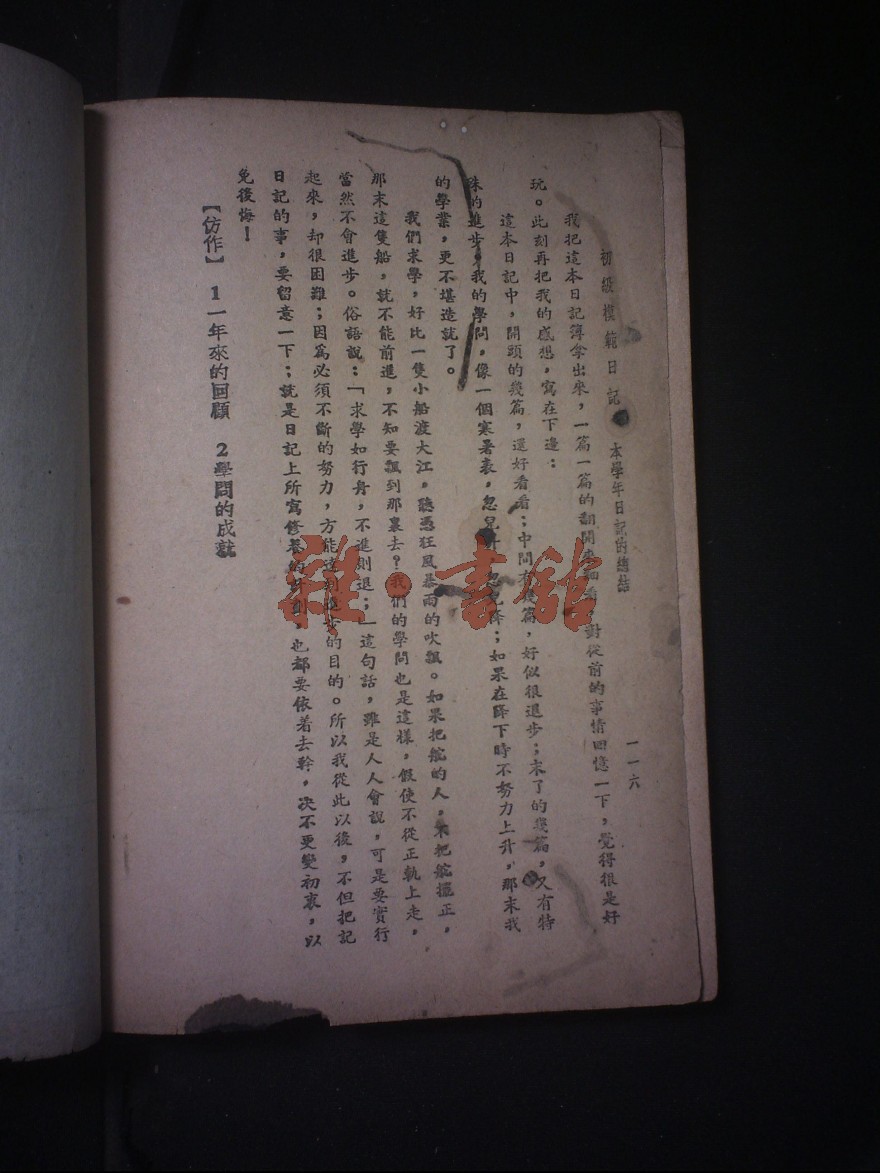 初級模範日記 本學年日記的總結 一一六
我把這本日記簿拿出來，一篇一篇的翻開來細看，對從前的事情回憶一下，覺得很是好
玩。此刻再把我的感想，寫在下邊：
這本日記中，開頭的幾篇，還好看看；中間有幾篇，好似很進步；末了的幾篇，又有特
殊的進步。我的學問，像一個寒暑表，忽兒升，忽兒降；如果在降下時不努力上升，那末我
的學業，更不堪造就了。
我們求學，好比一隻小船渡大江，聽憑狂風暴雨的吹飄。如果把舵的人，不把舵擺正，
那末這隻船，就不能前進，不知要飄到那裏去？我們的學問也是這樣，假使不從正軌上走，
當然不會進步。俗語說：「求學如行舟，不進則退；」這句話，雖是人人會說，可是要實行
起來，却很困難；因爲必須不斷的努力，方能達到進步的目的。所以我從此以後，不但把記
日記的事，要留意一下；就是日記上所寫修養的，也都要依着去幹，决不更變初衷，以
免後悔！
【仿作】 1一年來的回顧 2學問的成就
雜·書館